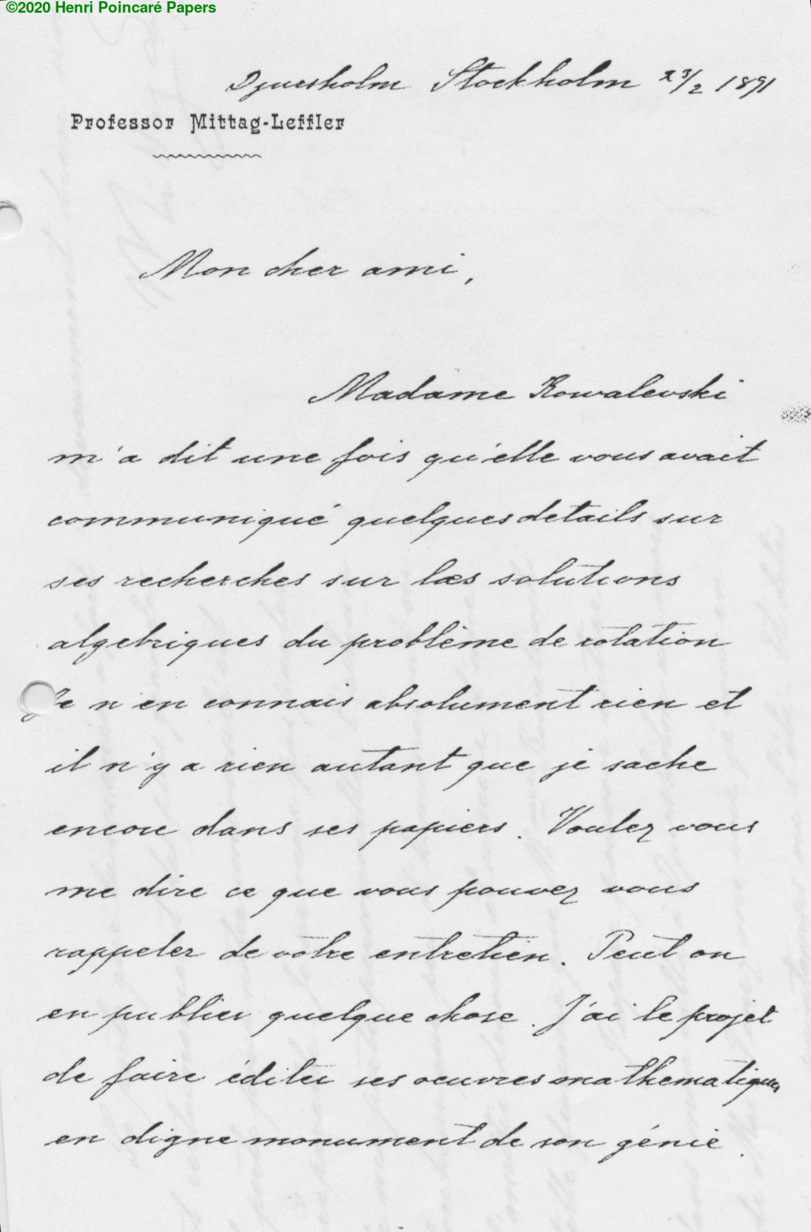 ©2020 Henri Poincaré Papers
Djursholm Stockholm 23/2 1891
Professor Mittag-Leffler
Mon cher ami,
Madame Kowalevski
m'a dit une fois qu'elle vous avait
communiqué quelques details sur
ses recherches sur les solutions
algebriques du problème de rotation
Je n'en connais absolument rien et
il n'y a rien autant que je sache
encore dans ses papiers. Voulez vous
me dire ce que vous pouvez vous
rappeler de votre entretien. Peut on
en publier quelque chose. J'ai le projet
de faire éditer ses oeuvres mathematiques
en digne monument de son génie.